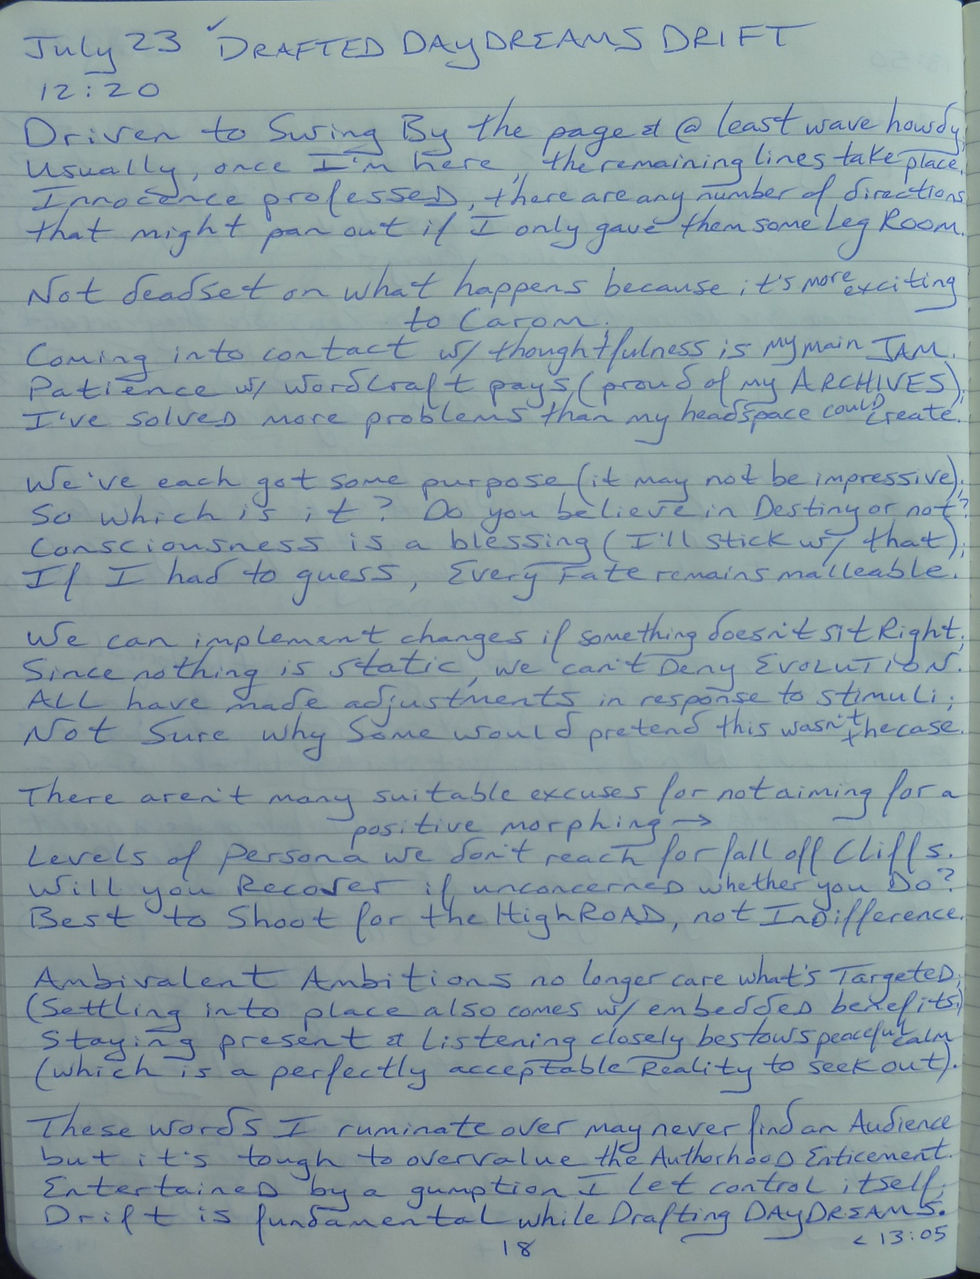 July 23 ✓DRAFTED DAYDREAMS DRIFT
12:20
Driven to Swing By the page & @ least wave howdy.
Usually, once I'm here, the remaining lines take place.
Innocence professed, there are any number of directions
that might pan out if I only gave them some Leg Room.
Not deadset on what happens because it's more exciting
to Carom.
Coming into contact w/ thoughtfulness is my main JAM.
Patience w/ wordcraft pays (proud of my ARCHIVES);
I've solved more problems than my headspace could create.
We've each got some purpose (it may not be impressive).
So which is it? Do you believe in Destiny or not?
Consciousness is a blessing (I'll stick w/ that);
If I had to guess, Every Fate remains malleable.
We can implement changes if something doesn't sit Right;
Since nothing is static, we can't Deny EVOLUTION.
ALL have made adjustments in response to stimuli;
Not Sure why Some would pretend this wasn't the case.
There aren't many suitable excuses for not aiming for a
positive morphing →
Levels of Persona we don't reach for fall off Cliffs.
Will you Recover if unconcerned whether you Do?
Best to Shoot for the High ROAD, not Indifference.
Ambivalent Ambitions no longer care what's Targeted;
(Settling into place also comes w/ embedded benefits)
Staying present & Listening closely bestows peaceful calm
(which is a perfectly acceptable Reality to seek out).
These words I ruminate over may never find an Audience
but it's tough to overvalue the Authorhood Enticement.
Entertained by a gumption I let control itself;
Drift is fundamental while Drafting DAYDREAMS.
18
< 13:05